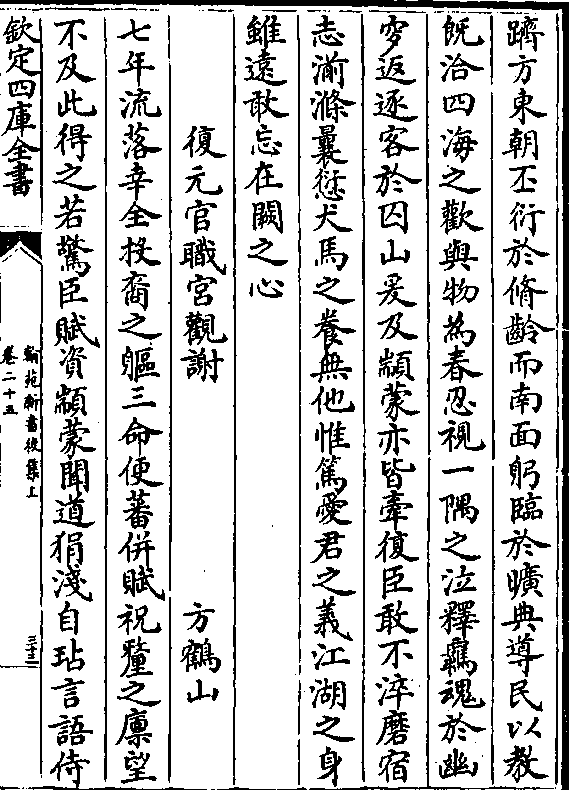 躋方東朝丕衍於脩齡而南面躬臨於曠典導民以教
既洽四海之歡與物為春忍視一隅之泣釋羈魂於幽
穸返逐客於囚山爰及顓蒙亦皆牽復臣敢不淬磨宿
志湔滌曩愆犬馬之養無他惟篤愛君之義江湖之身
雖遠敢忘在闕之心
復元官職宮觀謝　方鶴山
七年流落幸全投裔之軀三命便蕃併賦祝釐之廩望
不及此得之若驚臣賦資顓蒙聞道狷淺自玷言語侍
欽定四庫全書
翰苑新書後集上
卷二十五
三十三